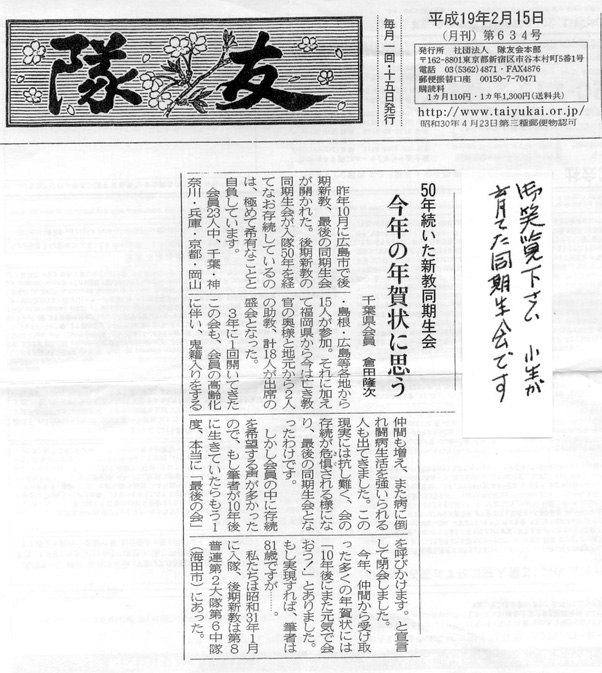 隊友
毎月一回・十五日発行
平成19年2月15日
（月刊）第634号
発行所　社団法人　隊友会本部
〒162-8801東京都新宿区市谷本村町5番1号
電話　03(5362)4871・FAX4876
郵便振替口座　00150-7-70471
購読料
1カ月110円・1カ年1,300円（送料共）
http://www.taiyukai.or.jp/
昭和30年4月23日第三種郵便物認可
御笑覧下さい　小生が
育てた同期生会です
50年続いた新教同期生会
今年の年賀状に思う
千葉県会員　倉田隆次
昨年10月に広島市で後
期新教、最後の同期生会
が開かれた。後期新教の
同期生会が入隊50年を経
てなお存続しているの
は、極めて希有なことと
自負しています。
会員23人中、千葉・神
奈川・兵庫・京都・岡山
・島根・広島等各地から
15人が参加。それに加え
て福岡県から今は亡き教
官の奥様と地元から2人
の助教、計18人が出席の
盛会となった。
3年に1回開いてきた
この会も、会員の高齢化
に伴い、鬼籍入りをする
仲間も増え、また病に倒
れ闘病生活を強いられる
人も出てきました。この
現実には抗し難く、会の
存続が危惧される様にな
り、最後の同期生会とな
ったわけです。
しかし会員の中に存続
を希望する声が多かった
ので、もし筆者が10年後
に生きていたらもう1
度、本当に「最後の会」
を呼びかけます。と宣言
して閉会しました。
今年、仲間から受け取
った多くの年賀状には
「10年後にまた元気で会
おう！」とありました。
もし実現すれば、筆者は
81歳ですが……。
私たちは昭和31年1月
に入隊、後期新教は第8
普連第2大隊第6中隊
（海田市）にあった。